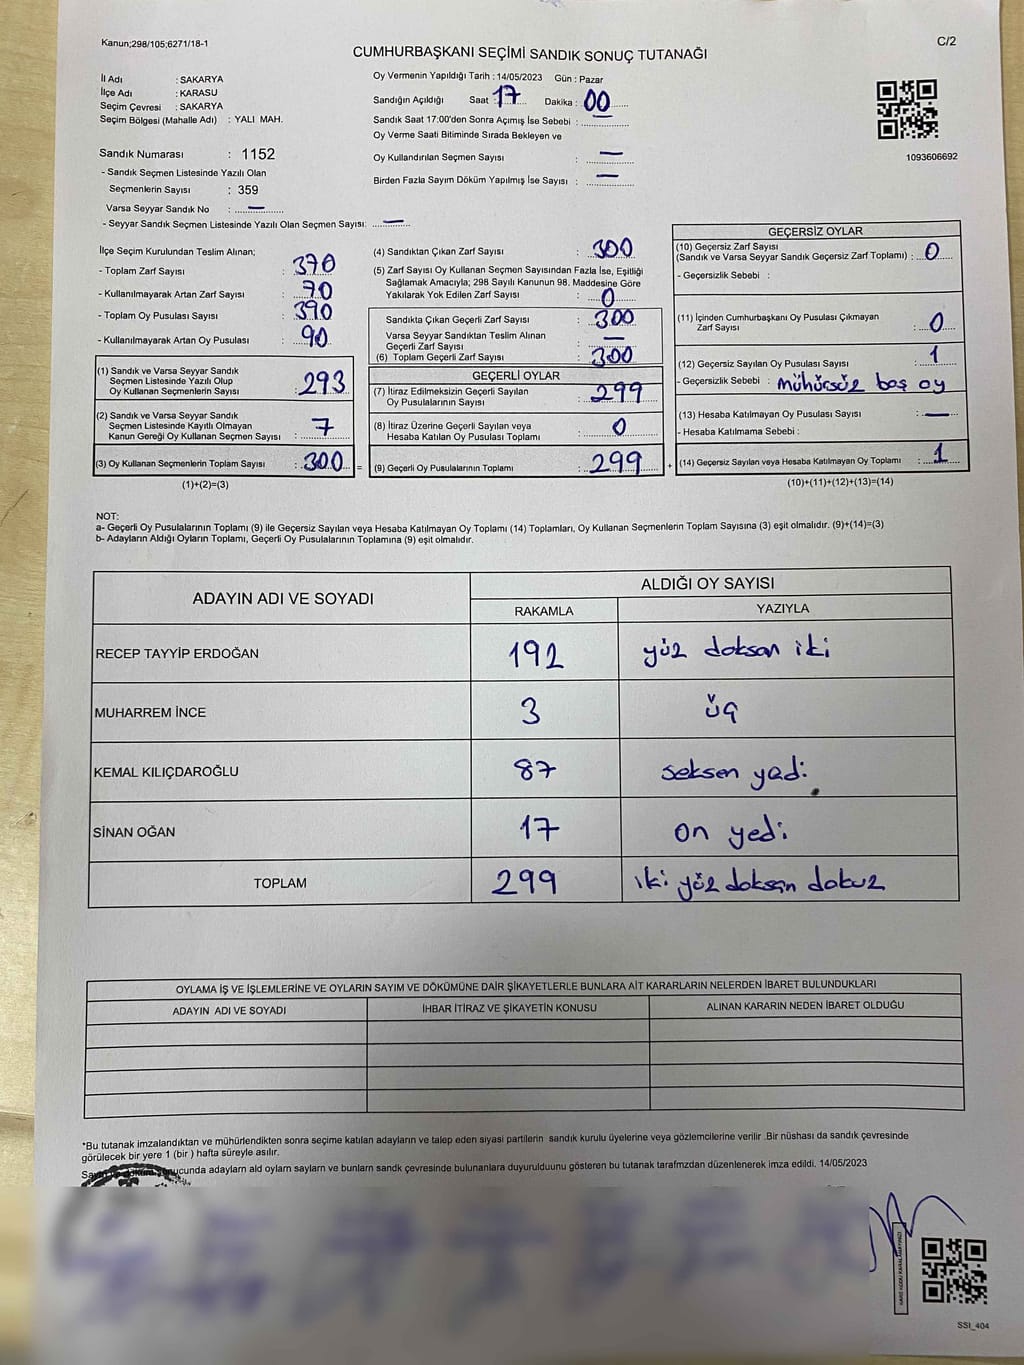 Kanun;298/105;6271/18-1
C/2
CUMHURBAŞKANI SEÇİMİ SANDIK SONUÇ TUTANAĞI
İl Adı : SAKARYA
İlçe Adı : KARASU
Seçim Çevresi : SAKARYA
Seçim Bölgesi (Mahalle Adı) : YALI MAH.
Sandık Numarası : 1152
- Sandık Seçmen Listesinde Yazılı Olan
Seçmenlerin Sayısı : 359
Varsa Seyyar Sandık No : —
- Seyyar Sandık Seçmen Listesinde Yazılı Olan Seçmen Sayısı: —
Oy Vermenin Yapıldığı Tarih : 14/05/2023 Gün : Pazar
Sandığın Açıldığı Saat : 17 Dakika : 00
Sandık Saat 17:00'den Sonra Açımış İse Sebebi : —
Oy Verme Saati Bitiminde Sırada Bekleyen ve
Oy Kullandırılan Seçmen Sayısı : —
Birden Fazla Sayım Döküm Yapılmış İse Sayısı : —
1093606692
İlçe Seçim Kurulundan Teslim Alınan;
- Toplam Zarf Sayısı : 370
- Kullanılmayarak Artan Zarf Sayısı : 70
- Toplam Oy Pusulası Sayısı : 390
- Kullanılmayarak Artan Oy Pusulası : 90
(1) Sandık ve Varsa Seyyar Sandık
Seçmen Listesinde Yazılı Olup
Oy Kullanan Seçmenlerin Sayısı : 293
(2) Sandık ve Varsa Seyyar Sandık
Seçmen Listesinde Kayıtlı Olmayan
Kanun Gereği Oy Kullanan Seçmen Sayısı : 7
(3) Oy Kullanan Seçmenlerin Toplam Sayısı : 300 =
(1)+(2)=(3)
(4) Sandıktan Çıkan Zarf Sayısı : 300
(5) Zarf Sayısı Oy Kullanan Seçmen Sayısından Fazla İse, Eşitliği
Sağlamak Amacıyla; 298 Sayılı Kanunun 98. Maddesine Göre
Yakılarak Yok Edilen Zarf Sayısı : 0
Sandıkta Çıkan Geçerli Zarf Sayısı : 300
Varsa Seyyar Sandıktan Teslim Alınan
Geçerli Zarf Sayısı : —
(6) Toplam Geçerli Zarf Sayısı : 300
GEÇERLİ OYLAR
(7) İtiraz Edilmeksizin Geçerli Sayılan
Oy Pusulalarının Sayısı : 299
(8) İtiraz Üzerine Geçerli Sayılan veya
Hesaba Katılan Oy Pusulası Toplamı : 0
(9) Geçerli Oy Pusulalarının Toplamı : 299 +
GEÇERSİZ OYLAR
(10) Geçersiz Zarf Sayısı
(Sandık ve Varsa Seyyar Sandık Geçersiz Zarf Toplamı) : 0
- Geçersizlik Sebebi :
(11) İçinden Cumhurbaşkanı Oy Pusulası Çıkmayan
Zarf Sayısı : 0
(12) Geçersiz Sayılan Oy Pusulası Sayısı : 1
- Geçersizlik Sebebi : mühürsüz boş oy
(13) Hesaba Katılmayan Oy Pusulası Sayısı : —
- Hesaba Katılmama Sebebi :
(14) Geçersiz Sayılan veya Hesaba Katılmayan Oy Toplamı : 1
(10)+(11)+(12)+(13)=(14)
NOT:
a- Geçerli Oy Pusulalarının Toplamı (9) ile Geçersiz Sayılan veya Hesaba Katılmayan Oy Toplamı (14) Toplamları, Oy Kullanan Seçmenlerin Toplam Sayısına (3) eşit olmalıdır. (9)+(14)=(3)
b- Adayların Aldığı Oyların Toplamı, Geçerli Oy Pusulalarının Toplamına (9) eşit olmalıdır.
ADAYIN ADI VE SOYADI
ALDIĞI OY SAYISI
RAKAMLA YAZIYLA
RECEP TAYYİP ERDOĞAN 192 yüz doksan iki
MUHARREM İNCE 3 üç
KEMAL KILIÇDAROĞLU 87 seksen yedi
SİNAN OĞAN 17 on yedi
TOPLAM 299 iki yüz doksan dokuz
OYLAMA İŞ VE İŞLEMLERİNE VE OYLARIN SAYIM VE DÖKÜMÜNE DAİR ŞİKAYETLERLE BUNLARA AİT KARARLARIN NELERDEN İBARET BULUNDUKLARI
ADAYIN ADI VE SOYADI İHBAR İTİRAZ VE ŞİKAYETİN KONUSU ALINAN KARARIN NEDEN İBARET OLDUĞU
*Bu tutanak imzalandıktan ve mühürlendikten sonra seçime katılan adayların ve talep eden siyasi partilerin sandık kurulu üyelerine veya gözlemcilerine verilir .Bir nüshası da sandık çevresinde
görülecek bir yere 1 (bir ) hafta süreyle asılır.
adaylarn ald oylarn saylarn ve bunlarn sandk çevresinde bulunanlara duyurulduunu gösteren bu tutanak tarafmzdan düzenlenerek imza edildi. 14/05/2023
SSI_404